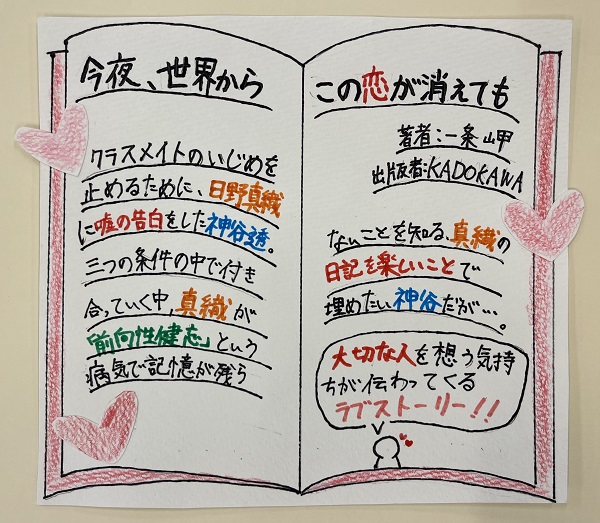 今夜、世界から
クラスメイトのいじめを
止めるために、日野真織
に嘘の告白をした神谷透。
三つの条件の中で付き
合っていく中，真織が
「前向性健忘」という
病気で記憶が残ら
この恋が消えても
著者：一条 岬
出版者：KADOKAWA
ないことを知る、真織の
日記を楽しいことで
埋めたい神谷だが…。
大切な人を想う気持
ちが伝わってくる
ラブストーリー!!